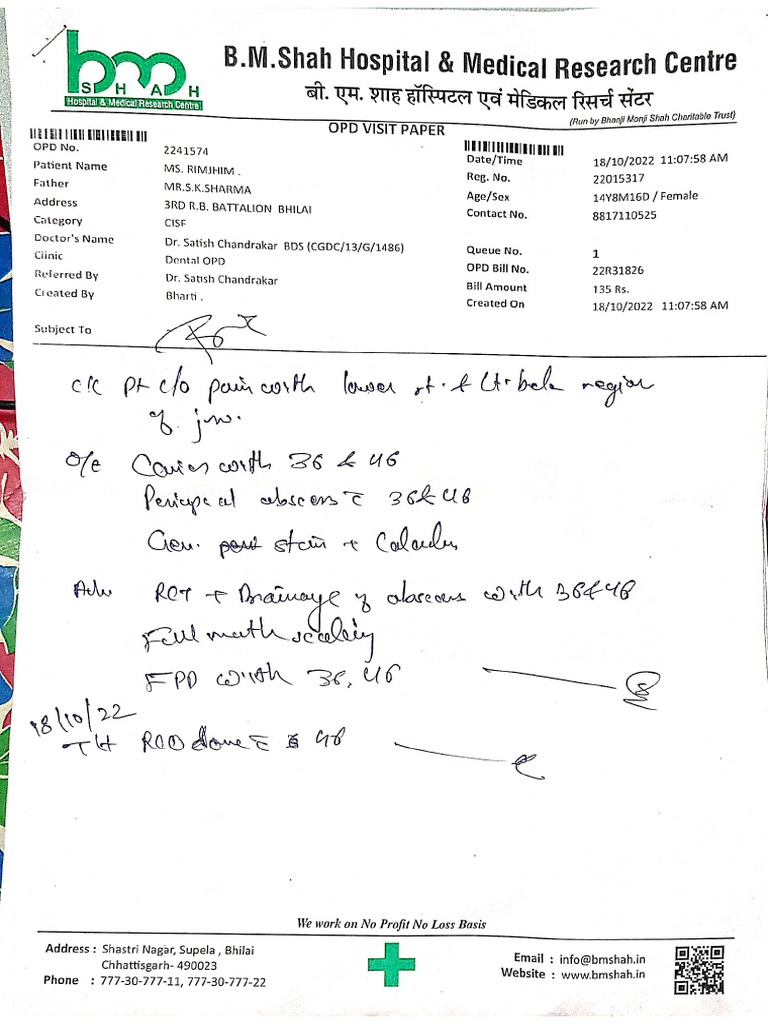 bmh
SHAH
Hospital & Medical Research Centre
B.M.Shah Hospital & Medical Research Centre
बी. एम. शाह हॉस्पिटल एवं मेडिकल रिसर्च सेंटर
(Run by Bhanji Monji Shah Charitable Trust)
OPD VISIT PAPER
OPD No. 2241574
Patient Name MS. RIMJHIM .
Father MR.S.K.SHARMA
Address 3RD R.B. BATTALION BHILAI
Category CISF
Doctor's Name Dr. Satish Chandrakar BDS (CGDC/13/G/1486)
Clinic Dental OPD
Referred By Dr. Satish Chandrakar
Created By Bharti .
Date/Time 18/10/2022 11:07:58 AM
Reg. No. 22015317
Age/Sex 14Y8M16D / Female
Contact No. 8817110525
Queue No. 1
OPD Bill No. 22R31826
Bill Amount 135 Rs.
Created On 18/10/2022 11:07:58 AM
Subject To
c/c pt c/o pain with lower rt. & Lt. back region
of jw.
O/e Caries with 36 & 46
Periapical abscess c̄ 36 & 46
Gen. stain + Calculus
Adv RCT + Drainage of abscess with 36 & 46
Full mouth scaling
FPD with 36, 46
18/10/22
done c̄ 46
We work on No Profit No Loss Basis
Address : Shastri Nagar, Supela , Bhilai
Chhattisgarh- 490023
Phone : 777-30-777-11, 777-30-777-22
Email : info@bmshah.in
Website : www.bmshah.in